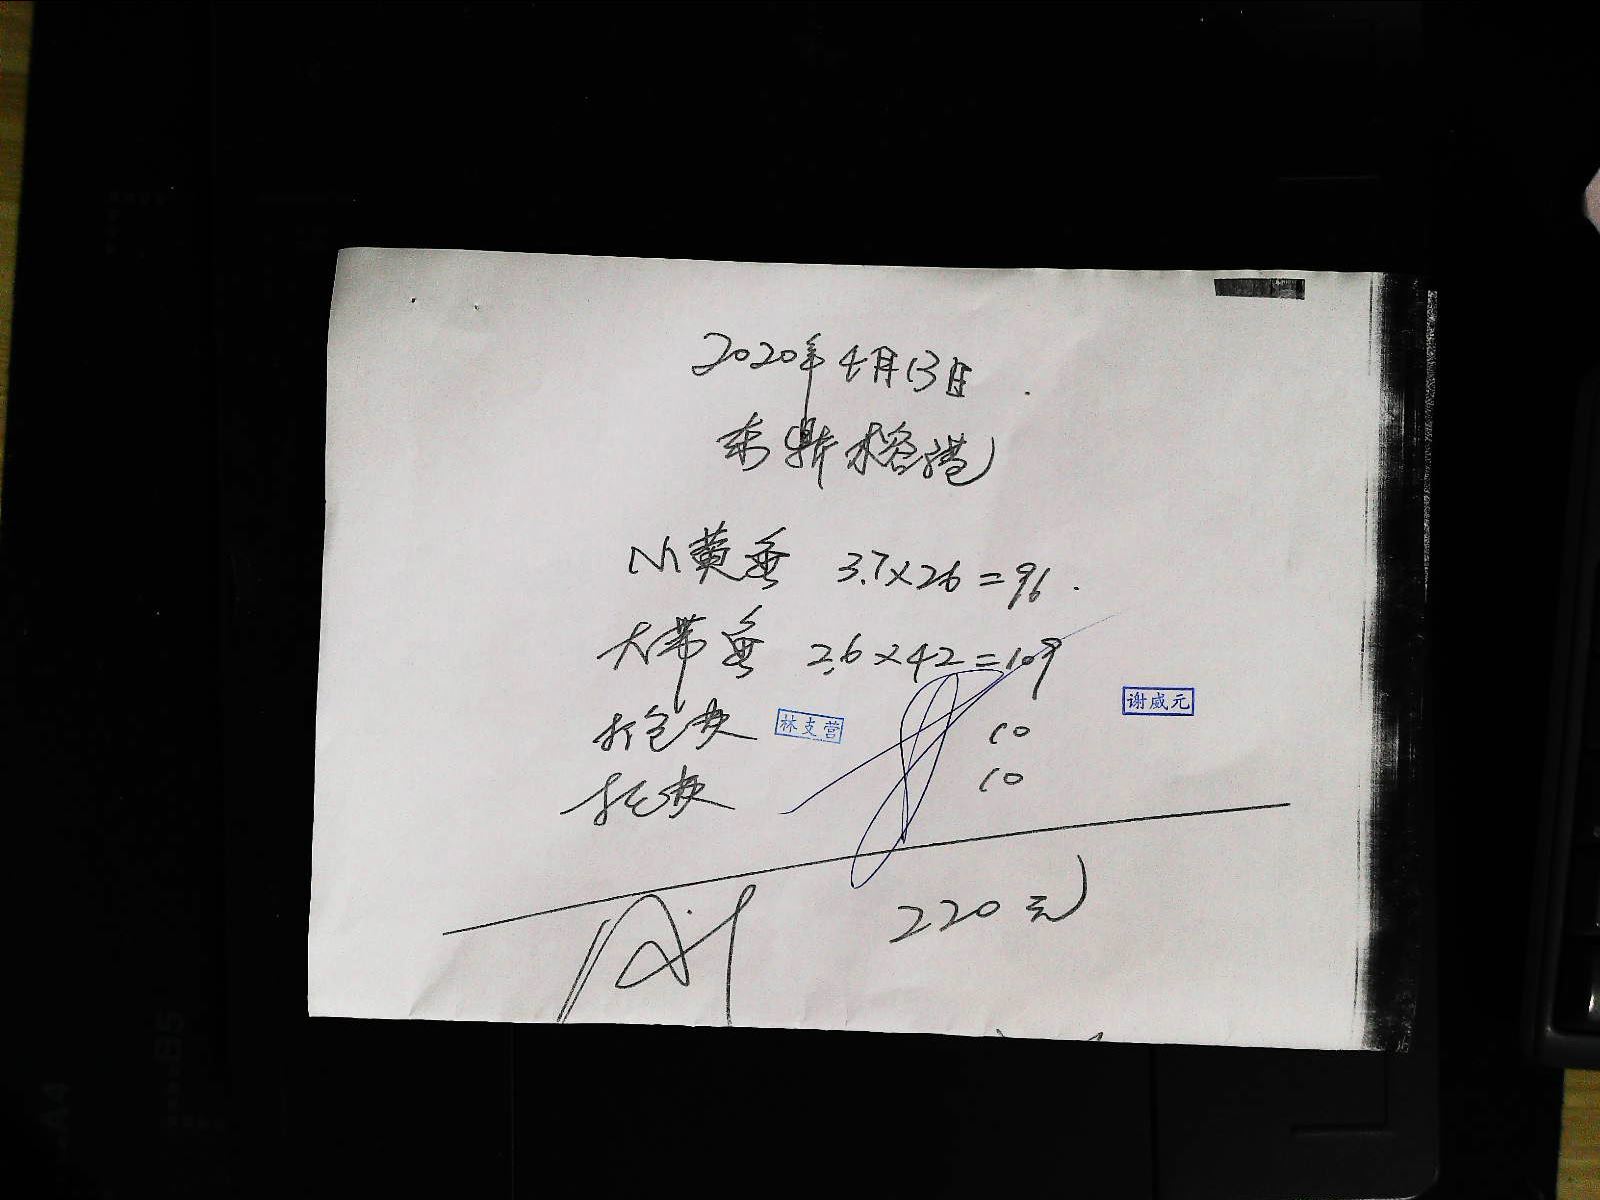 2020年4月13日
小黄鱼 3.7×26=96
大带鱼 2.6×42=109
打包费 林支营 10 谢威元
托费 10
220元